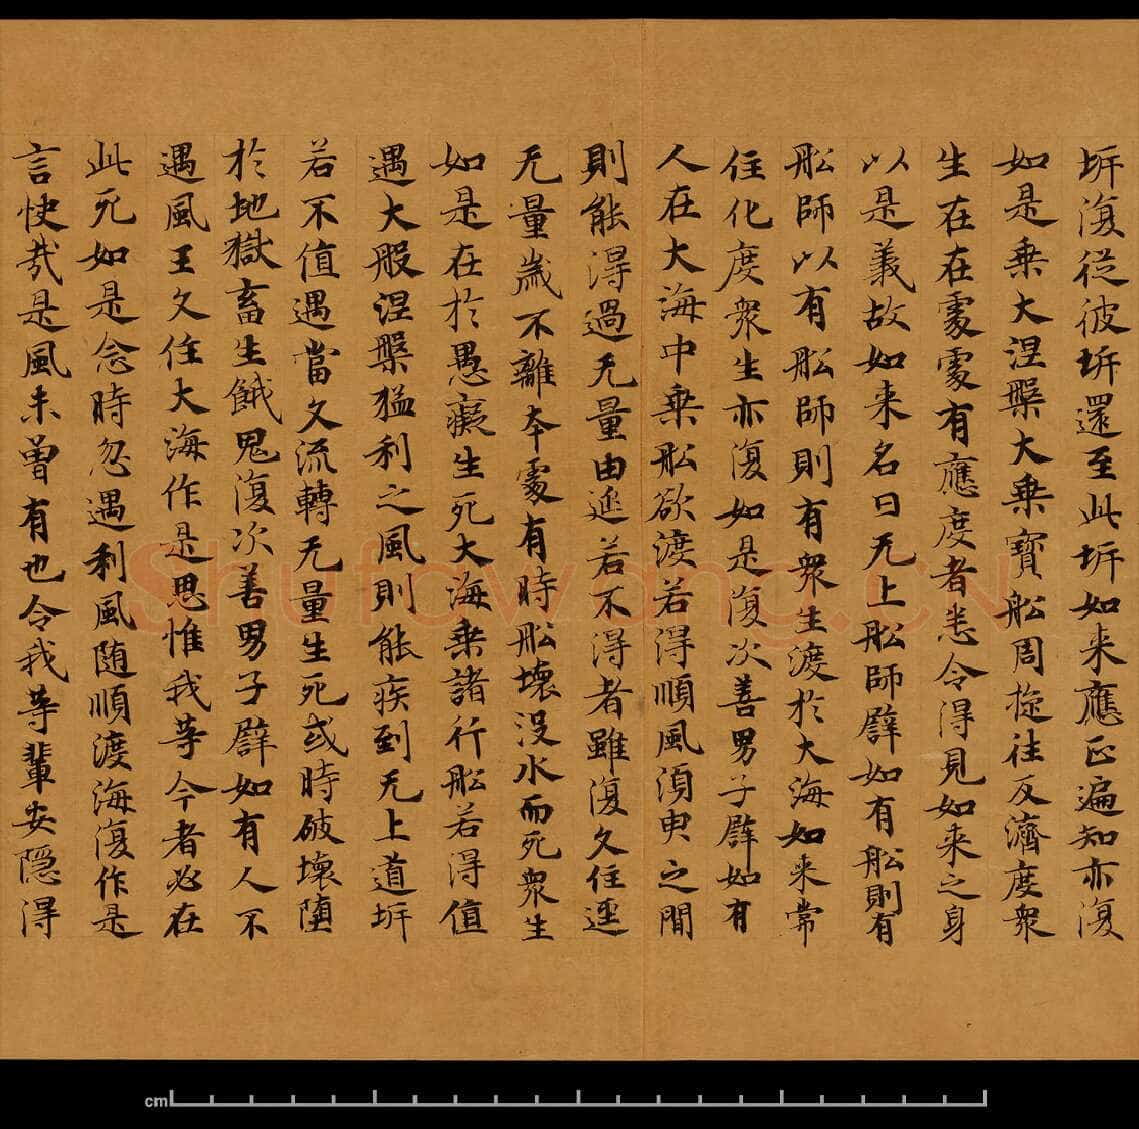 坼復從彼坼還至此坼如来應正遍知亦復
如是乗大涅槃大乗寶舩周旋往反濟度衆
生在在處處有應度者悉令得見如来之身
以是義故如来名曰无上舩師譬如有舩則有
舩師以有舩師則有衆生渡於大海如来常
住化度衆生亦復如是復次善男子譬如有
人在大海中乗舩欲渡若得順風須臾之間
則能得過无量由延若不得者雖復久住逕
无量歲不離本處有時舩壞没水而死衆生
如是在於愚癡生死大海乗諸行舩若得值
遇大般涅槃猛利之風則能疾到无上道坼
若不值遇當久流轉无量生死或時破壞墮
於地獄畜生餓鬼復次善男子譬如有人不
遇風王久住大海作是思惟我等今者必在
此死如是念時忽遇利風随順渡海復作是
言快哉是風未曾有也令我等輩安隱得
Shufawang.CN